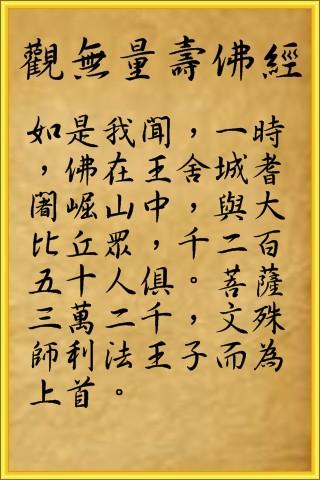 觀無量壽佛經
如是我聞，一時
，佛在王舍城耆
闍崛山中，與大
比丘眾，千二百
五十人俱。菩薩
三萬二千，文殊
師利法王子而為
上首。